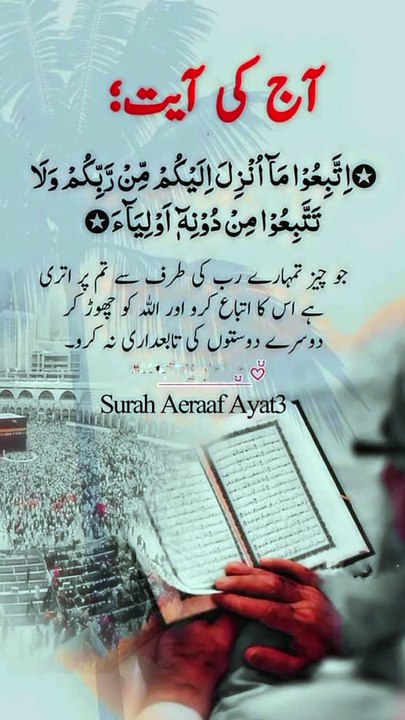 آج کی آیت؛
✪اِتَّبِعُوْا مَاۤ اُنْزِلَ اِلَیْكُمْ مِّنْ رَّبِّكُمْ وَلَا
تَتَّبِعُوْا مِنْ دُوْنِهٖۤ اَوْلِیَآءَ✪
جو چیز تمہارے رب کی طرف سے تم پر اتری
ہے اس کا اتباع کرو اور اللہ کو چھوڑ کر
دوسرے دوستوں کی تابعداری نہ کرو۔
Surah Aeraaf Ayat3